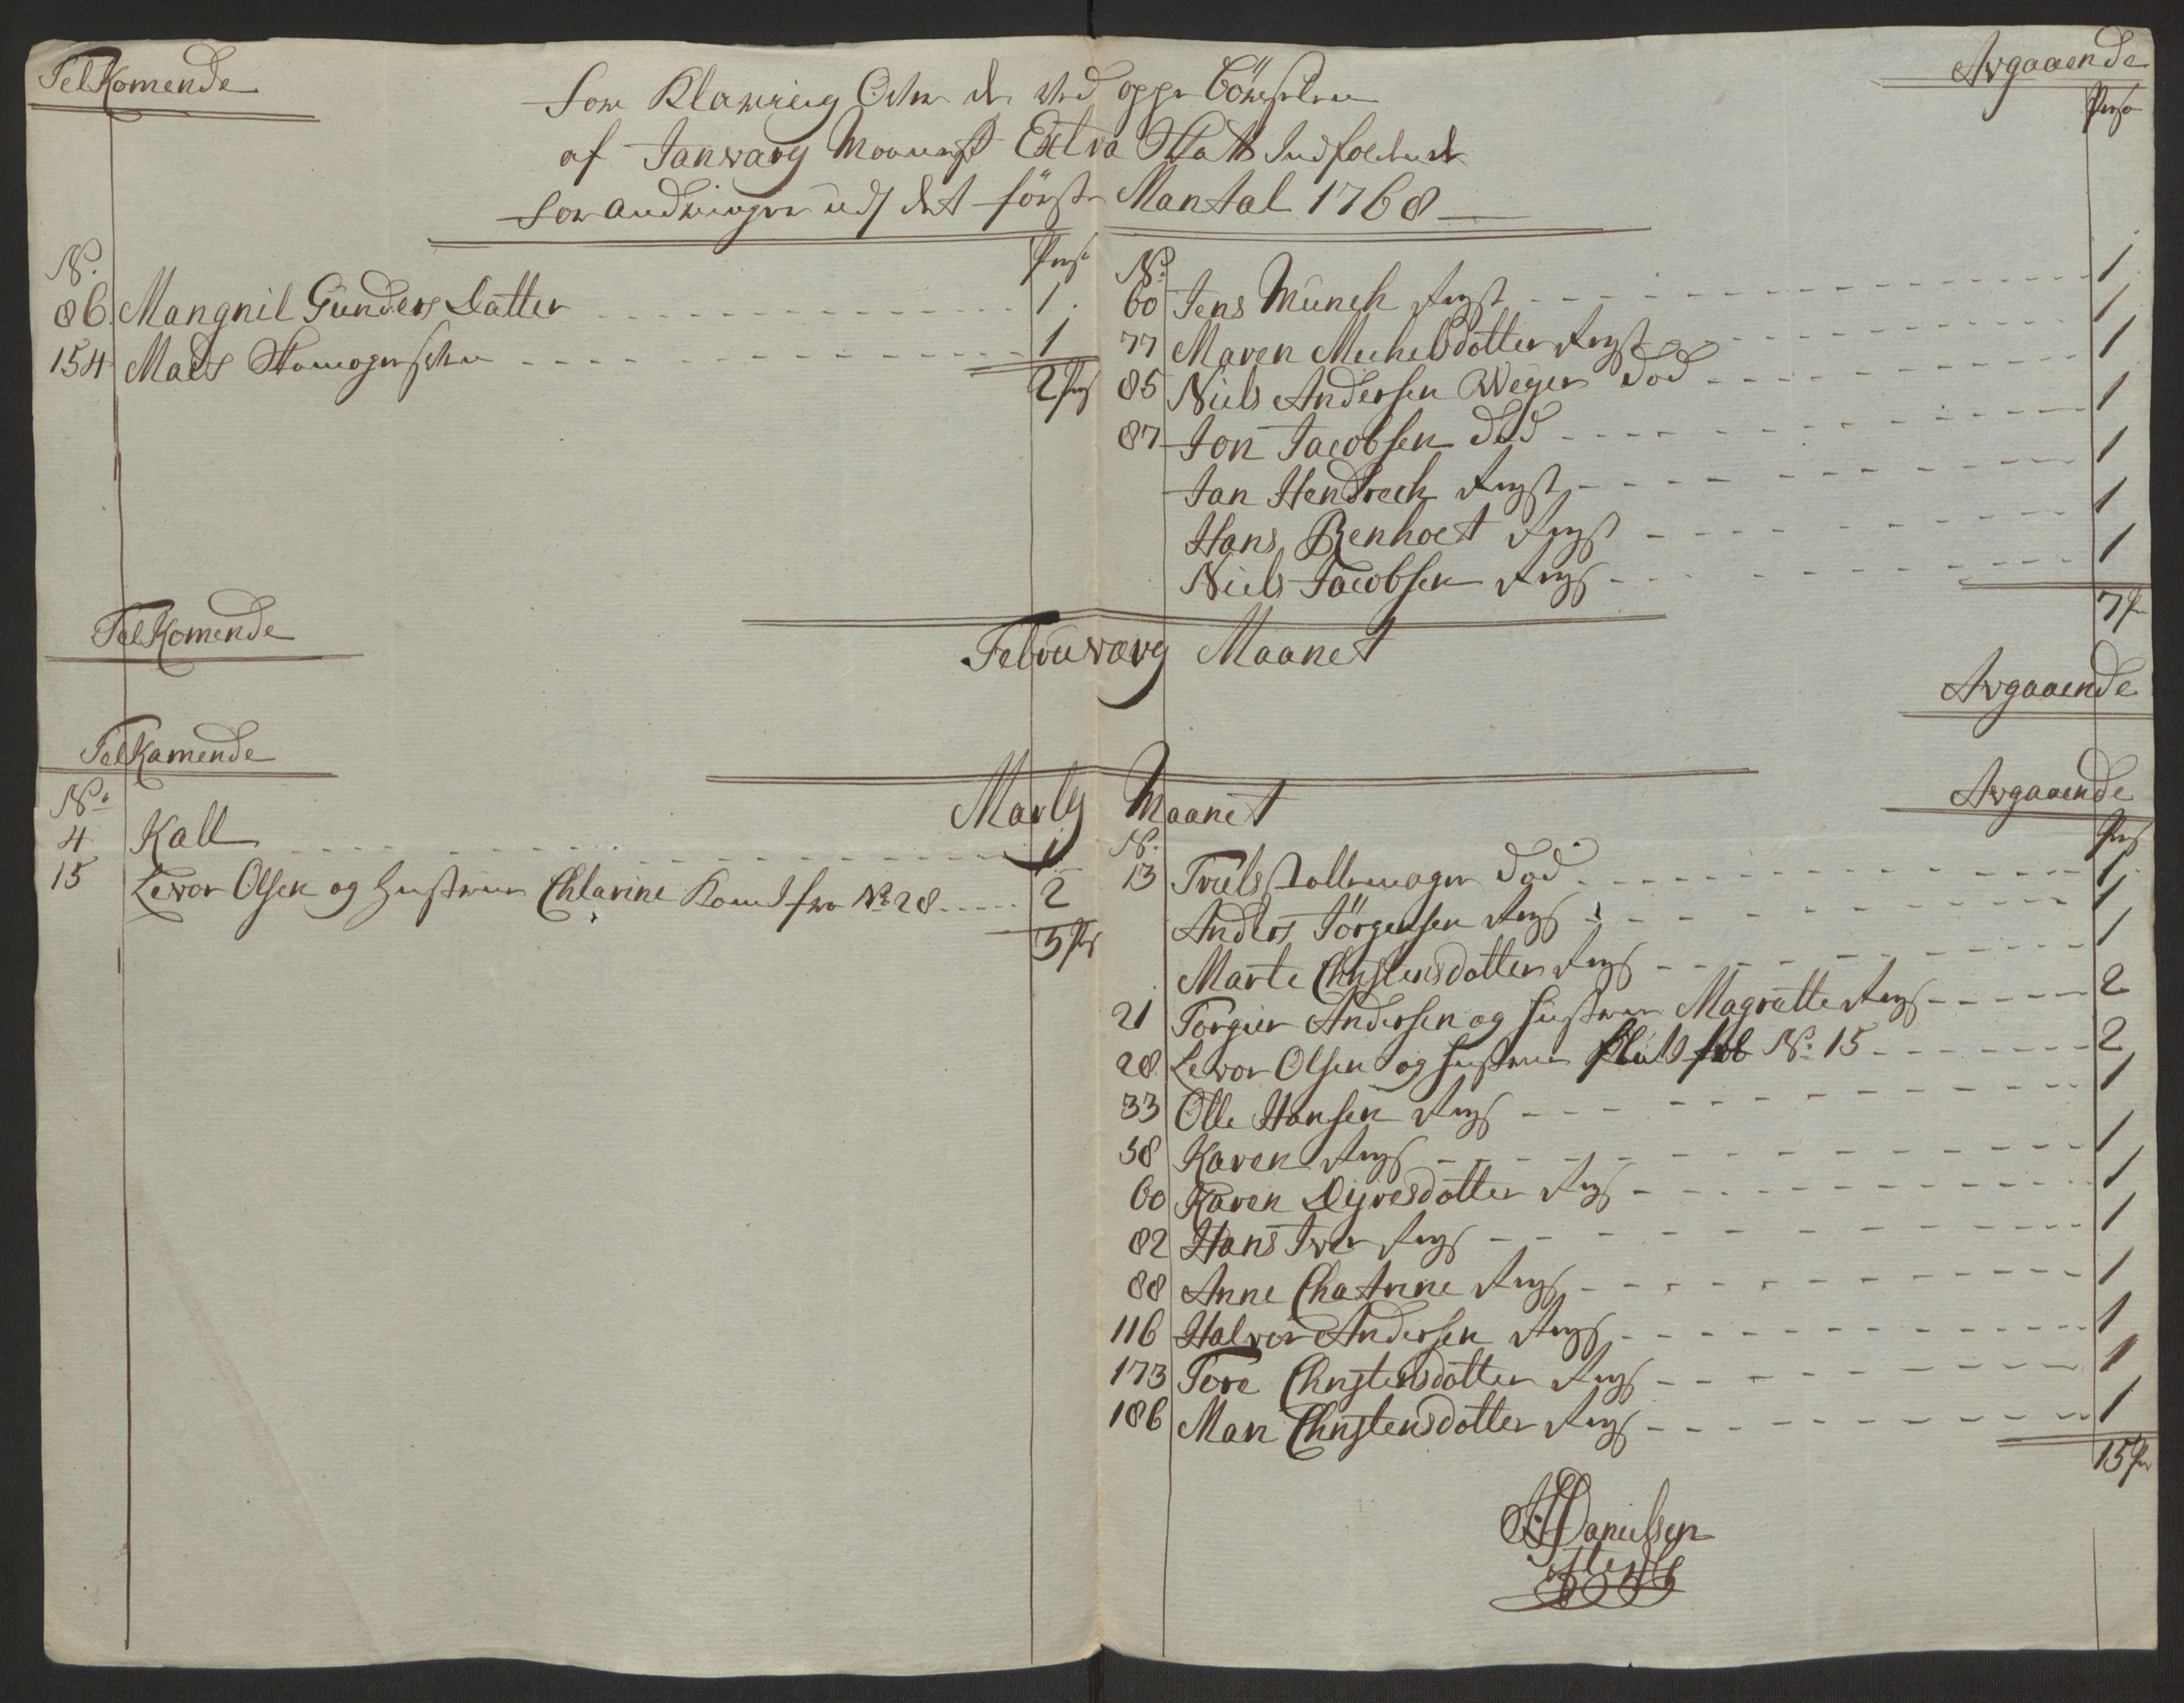 TelKomende
Avgaaende
For Klaring Over de ved oppe
af Janvary Maanest Extra Skatt Indfolende
Forandringer udj det förste Mantal 1768
Pers
No.
Pers
No.
86 Mangnil Gunders Datter 1
154 Mads 1
2 Prs
60 Jens Munch Reyst 1
77 Maren Michelsdotter Reyst 1
85 Niels Andersen Weyer död 1
87 Jon Jacobsen död 1
Jan Hendrech Reyst 1
Hans Benhoet Reyst 1
Niels Jacobsen Reyst 1
7 Pr
TelKomende
Februvary Maanet
Avgaaende
TelKamende
Marty Maanet
Avgaaende
No.
4 Kall 1
15 Levor Olsen og Hustrue Chlarine Komt fra No 28 2
3 Prs
Prs
No.
13 Truls Stollemager död 1
Anders Jörgensen Reys 1
Marte Christensdotter Reys 1
21 Torgier Andersen og Hustrue Magrette Reys 2
28 Levor Olsen og Hustrue flöt tel No. 15 2
33 Olle Hansen Reys 1
58 Karen Reys 1
60 Karen Dyresdotter Reys 1
82 Hans Iver Reys 1
88 Anne Chatrine Reys 1
116 Halvor Andersen Reys 1
173 Tore Christensdotter Reys 1
186 Mari Christensdotter Reys 1
15 Pr
Danielsen